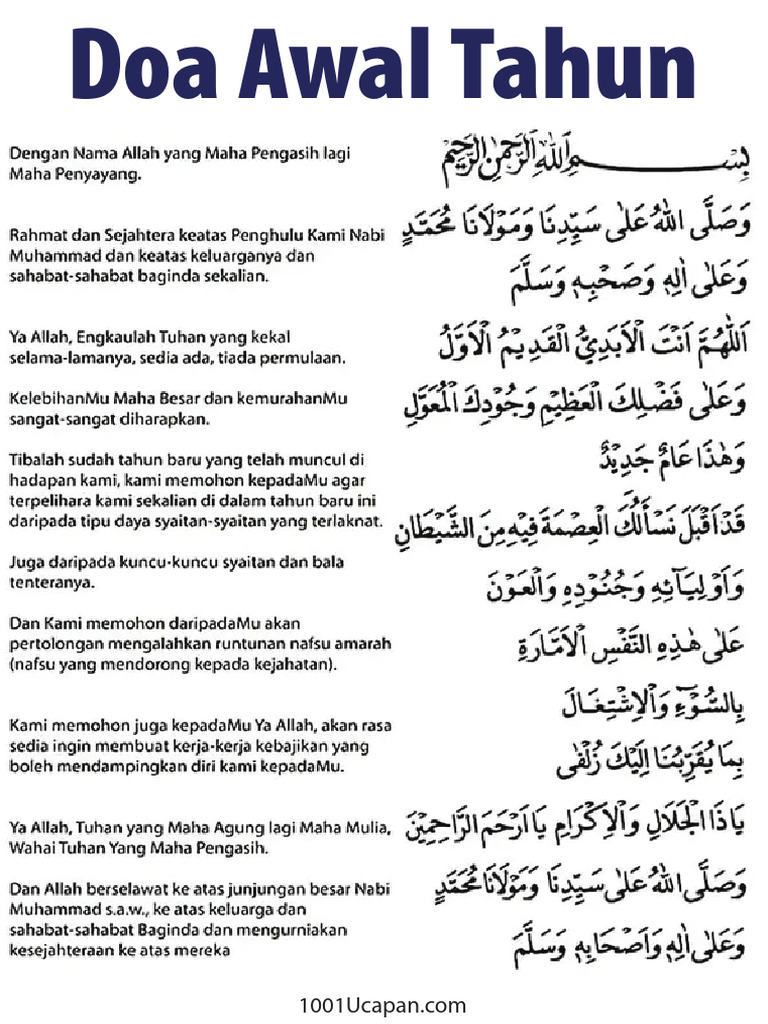 Doa Awal Tahun
Dengan Nama Allah yang Maha Pengasih lagi
Maha Penyayang.
بِسْمِ اللهِ الرَّحْمٰنِ الرَّحِيْمِ
Rahmat dan Sejahtera keatas Penghulu Kami Nabi
Muhammad dan keatas keluarganya dan
sahabat-sahabat baginda sekalian.
وَصَلَّى اللهُ عَلٰى سَيِّدِنَا وَمَوْلَانَا مُحَمَّدٍ
وَعَلٰى اٰلِهٖ وَصَحْبِهٖ وَسَلَّمَ
Ya Allah, Engkaulah Tuhan yang kekal
selama-lamanya, sedia ada, tiada permulaan.
اَللّٰهُمَّ اَنْتَ الْاَبَدِيُّ الْقَدِيْمُ الْاَوَّلُ
KelebihanMu Maha Besar dan kemurahanMu
sangat-sangat diharapkan.
وَعَلٰى فَضْلِكَ الْعَظِيْمِ وَجُوْدِكَ الْمُعَوَّلِ
Tibalah sudah tahun baru yang telah muncul di
hadapan kami, kami memohon kepadaMu agar
terpelihara kami sekalian di dalam tahun baru ini
daripada tipu daya syaitan-syaitan yang terlaknat.
وَهٰذَا عَامٌ جَدِيْدٌ
قَدْ اَقْبَلَ نَسْأَلُكَ الْعِصْمَةَ فِيْهِ مِنَ الشَّيْطَانِ
Juga daripada kuncu-kuncu syaitan dan bala
tenteranya.
وَاَوْلِيَآئِهٖ وَجُنُوْدِهٖ وَالْعَوْنَ
Dan Kami memohon daripadaMu akan
pertolongan mengalahkan runtunan nafsu amarah
(nafsu yang mendorong kepada kejahatan).
عَلٰى هٰذِهِ النَّفْسِ الْاَمَّارَةِ
بِالسُّوْٓءِ وَالْاِشْتِغَالَ
Kami memohon juga kepadaMu Ya Allah, akan rasa
sedia ingin membuat kerja-kerja kebajikan yang
boleh mendampingkan diri kami kepadaMu.
بِمَا يُقَرِّبُنَا اِلَيْكَ زُلْفٰى
Ya Allah, Tuhan yang Maha Agung lagi Maha Mulia,
Wahai Tuhan Yang Maha Pengasih.
يَا ذَا الْجَلَالِ وَالْاِكْرَامِ يَا اَرْحَمَ الرَّاحِمِيْنَ
Dan Allah berselawat ke atas junjungan besar Nabi
Muhammad s.a.w., ke atas keluarga dan
sahabat-sahabat Baginda dan mengurniakan
kesejahteraan ke atas mereka
وَصَلَّى اللهُ عَلٰى سَيِّدِنَا وَمَوْلَانَا مُحَمَّدٍ
وَعَلٰى اٰلِهٖ وَاَصْحَابِهٖ وَسَلَّمَ
1001Ucapan.com